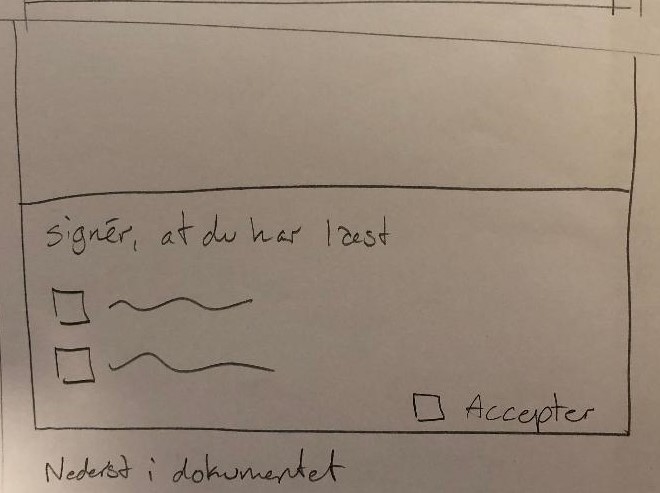 signér, at du har læst
Accepter
Nederst i dokumentet